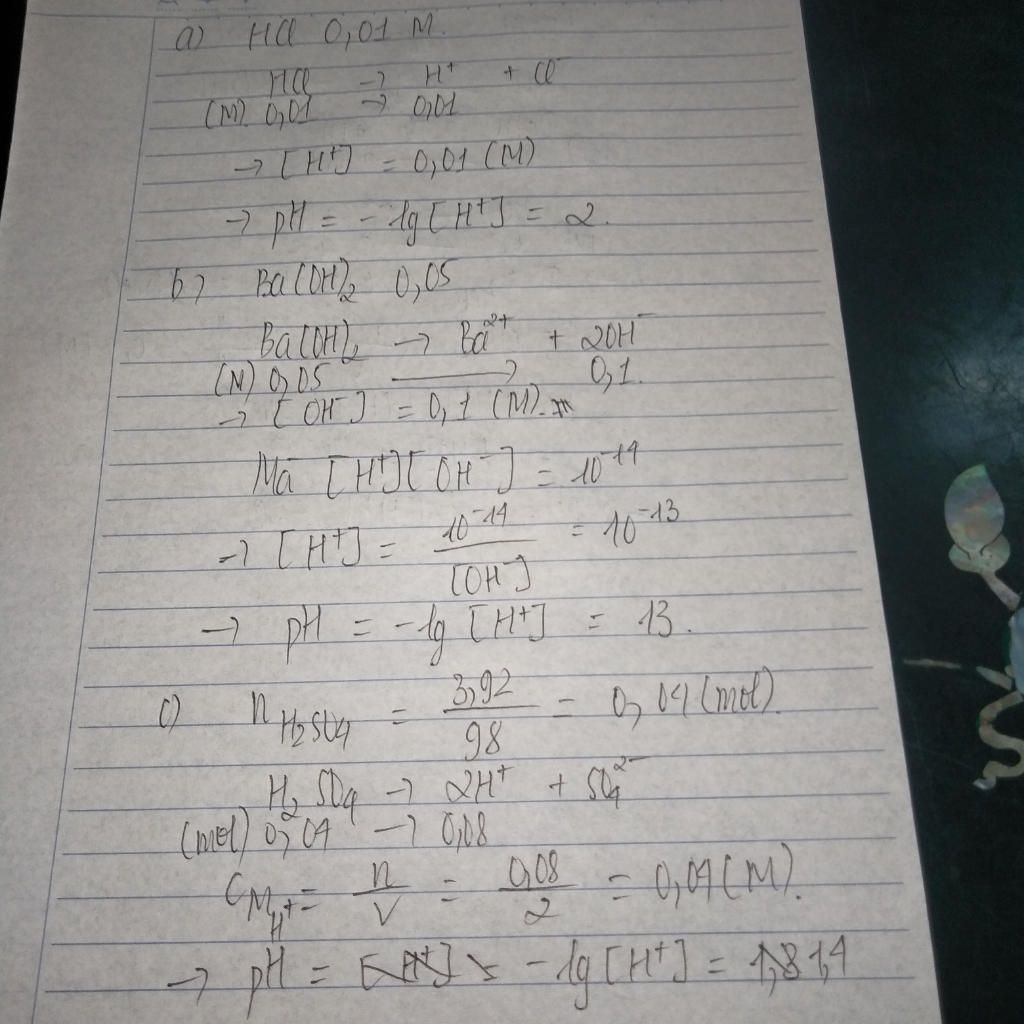 a) HCl 0,01 M.
HCl → H⁺ + Cl⁻
(M) 0,01 → 0,01
→ [H⁺] = 0,01 (M)
→ pH = -lg[H⁺] = 2.
b) Ba(OH)₂ 0,05
Ba(OH)₂ → Ba²⁺ + 2OH⁻
(M) 0,05 → 0,1.
→ [OH⁻] = 0,1 (M).
Mà [H⁺][OH⁻] = 10⁻¹⁴
→ [H⁺] = 10⁻¹⁴ / [OH⁻] = 10⁻¹³
→ pH = -lg [H⁺] = 13.
c) n H₂SO₄ = 3,92 / 98 = 0,04 (mol).
H₂SO₄ → 2H⁺ + SO₄²⁻
(mol) 0,04 → 0,08
C_M H⁺ = n / V = 0,08 / 2 = 0,04 (M).
→ pH = [H⁺] = -lg[H⁺] = 1,8 1,4